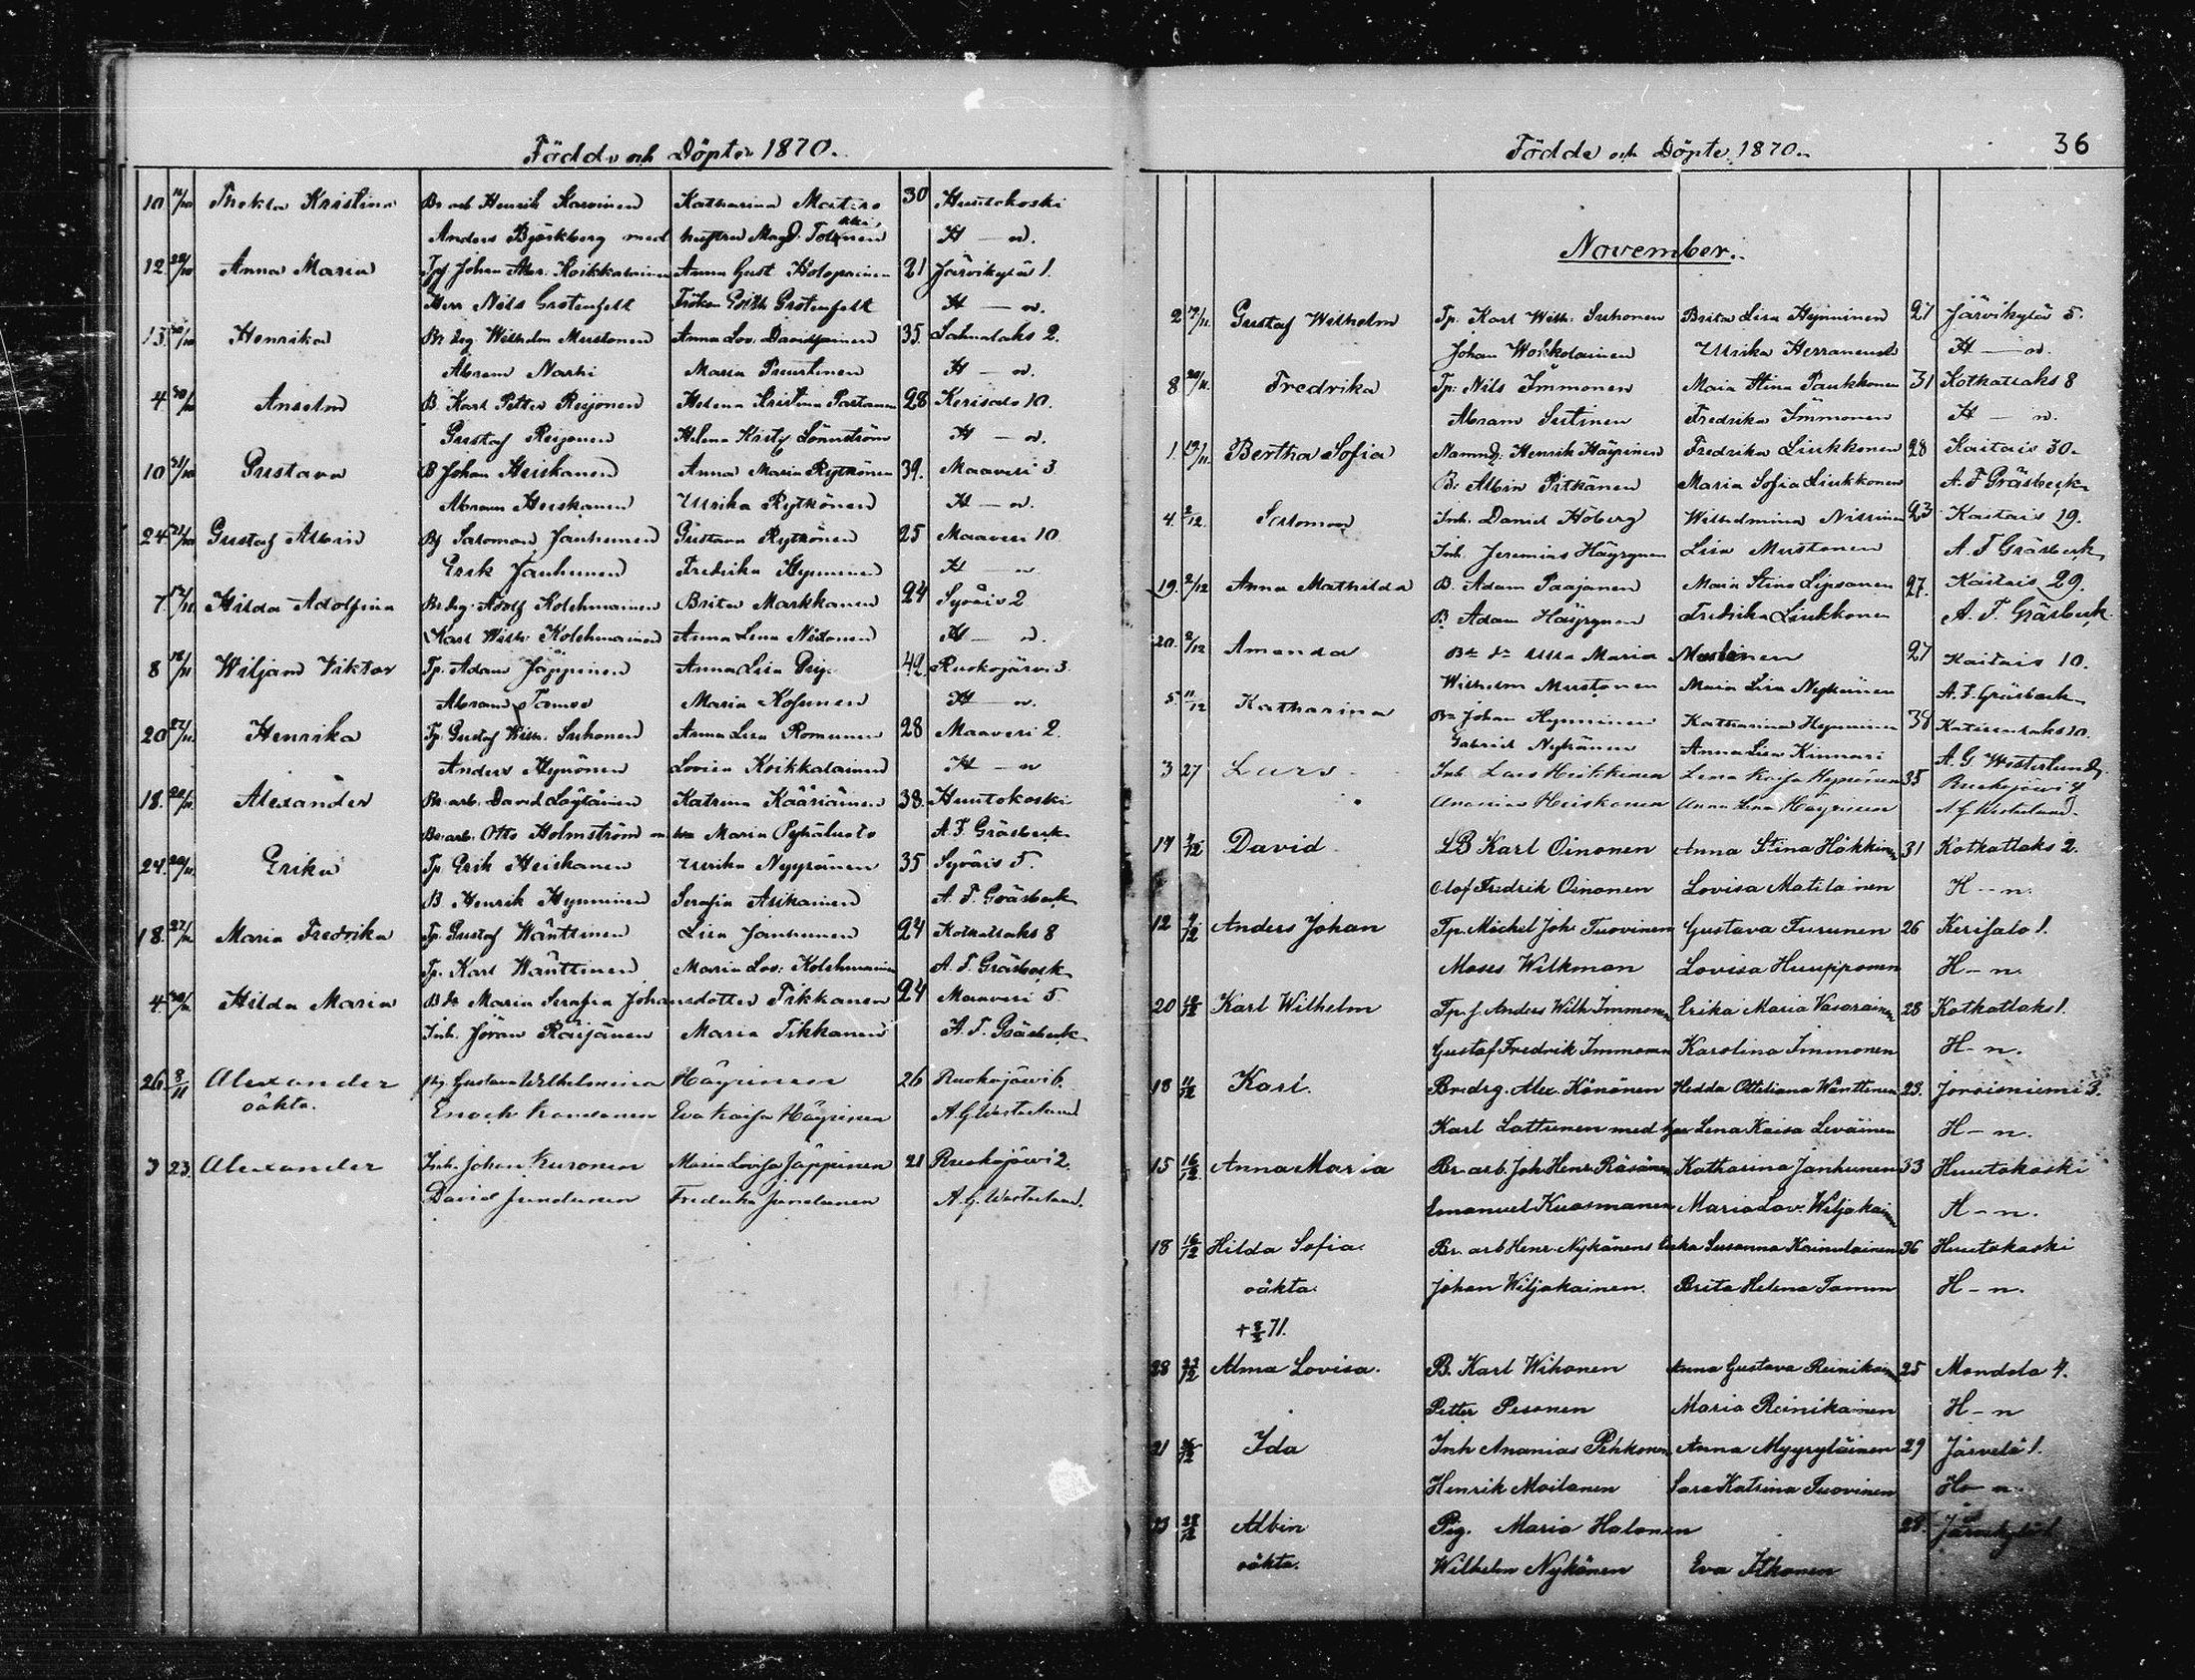 Födde och Döpte 1870.
10 16/10 Thekla Kristina Br arb Henrik Karvinen Katharina Martiso 30 Huutokoski
Anders Björkberg med hustru Magd. H - n.
12 23/10 Anna Maria Tpf Johan Alex. Koikkalainen Anna Gust Holopainen 21 Järvikylä 1.
Herr Nils Grotenfelt Fröken Edith Grotenfelt H - n.
13 Henrika Br drg. Wilhelm Mustonen Anna Lov. Davidsainen 35. Salmelaks 2.
Abram Narhi Maria Puustinen H - n.
4 30/10 Anselm B. Karl Petter Reijonen Helena Kristina Partanen 28 Kerisalo 10.
Gustaf Reijonen Helena Kristf Lönnström H - n.
10 31/10 Gustava B Johan Heiskanen Anna Maria Rytkönen 39. Maaveri 3
Abram Heiskanen Ulrika Rytkönen H - n.
24 31/10 Gustaf Albin Bf Salomon Janhunen Gustava Rytkönen 25 Maaveri 10
Erik Janhunen Fredrika Hynninen H - n
7. 12/11 Hilda Adolfina Br drg. Adolf Kolehmainen Brita Markkanen 24 Syväis 2
Karl Wilh. Kolehmainen Anna Lena Nissonen H - n.
8 18/11 Wiljam Viktor Tp. Adam Jäppinen Anna Lisa Grip 42. Ruokojärvi 3.
Abram Tamse Maria Kosunen H - n.
20 27/11 Henrika Tp. Gustaf Wilh. Suhonen Anna Lisa Romunen 28 Maaveri 2.
Anders Hynönen Lovisa Koikkalainen H - n
18. 20/11 Alexander Br. arb. David Löytäinen Katrina Kääriäinen 38. Huutokoski
Br. arb. Otto Holmström m hu Maria Pykäluoto A. F. Gräsbeck
24. 20/11 Erika Tp Erik Heiskanen Ulrika Nyyrönen 35 Syväis 5.
B Henrik Hynninen Serafia Asikainen A. F. Gräsbeck
18. 27/11 Maria Fredrika Tp. Gustaf Wänttinen Lisa Janhunen 24 Kotkatlaks 8
Tp. Karl Wänttinen Maria Lov: Kolehmainen A. F. Gräsbeck
4 30/11 Hilda Maria Bdr Maria Serafia Johansdotter Tikkanen 24 Maaveri 5.
Inh. Jöran Räisänen Maria Tikkanen A. F. Gräsbeck
26 8/11 Alexander Pig. Gustava Wilhelmina Häyrinen 26 Ruokojärvi 6.
oäkta. Enoch Kansanen Eva Kaisa Häyrinen A. G. Westerlund
3 23. Alexander Inh. Johan Kuronen Maria Lovisa Jäppinen 21 Ruokojärvi 2.
David Jundunen Fredrika Jundunen A. G. Westerlund.
Födde och Döpte 1870. 36
November.
2 17/11 Gustaf Wilhelm Tp. Karl Wilh. Suhonen Brita Lisa Hynninen 27 Järvikylä 5.
Johan Woikolainen Ulrika Herranen H - n.
8 20/11 Fredrika Tp. Nils Immonen Maria Stina Paukkonen 31 Kotkatlaks 8
Abram Sutinen Fredrika Immonen H - n.
1. 13/11 Bertha Sofia Nämnd: Henrik Häyrinen Fredrika Liukkonen 28 Kaitais 30.
B: Albin Pitkänen Maria Sofia Liukkonen A. F Gräsbeck
4. 2/12. Salomon Inh. Daniel Höberg Wilhelmina Nissinen 23 Kaitais 19.
Inh. Jeremias Häyrynen Lisa Mustonen A. F Gräsbeck
19. 2/12 Anna Mathilda B. Adam Paajanen Maria Stina Lipsanen 27. Kaitais 29.
B. Adam Häyrynen Fredrika Liukkonen A. F. Gräsbeck
20. 2/12 Amanda Ulla Maria 27 Kaitais 10.
Wilhelm Mustonen Maria Lisa Nykänen A. F. Gräsbeck
5. 11/12 Katharina Br. Johan Hynninen Katharina Hynninen 38
Gabriel Nykänen Anna Lisa Kinnari A. G. Westerlund
3 27 Lars Inh. Lars Heikkinen Lena Kaisa 35 Ruokojärvi 4
Ananias Heiskanen Anna Lena Häyrinen A. G. Westerlund.
14 4/12 David LB Karl Oinonen Anna Stina Häkkinen 31 Kotkatlaks 2.
Olof Fredrik Oinonen Lovisa Matilainen H - n.
12 4/12 Anders Johan Tp. Michel Joh. Tuovinen Gustava Turunen 26 Kerisalo 1.
Moses Wilkman Lovisa Huupponen H - n.
20 Karl Wilhelm Tp. f. Anders Wilh. Immonen Erika Maria Vasarainen 28 Kotkatlaks 1.
Gustaf Fredrik Immonen Karolina Immonen H - n.
18 11/12 Karl. Br. drg. Alex. Könönen Hedda Otteliana Wänttinen 23. Joroisniemi 3.
Karl Lattunen med hu Lena Kaisa Leväinen H - n.
15 16/12 Anna Maria Br. arb. Joh Henr. Räsänen Katharina Janhunen 33 Huutokoski
Emanuel Kuosmanen Maria Lov. Wiljakainen H - n.
18 16/12 Hilda Sofia. Br. arb Henr. Nykänens Susanna Kainulainen 36 Huutokoski
oäkta. Johan Wiljakainen. Brita Helena Tamm H - n.
+ 71.
28 27/12 Alma Lovisa. B. Karl Wihonen Anna Gustava Reinikainen 25 Mandola 4.
Petter Pesonen Maria Reinikainen H - n
21 Ida Inh Ananias Pehkonen Anna Myyryläinen 29 Järvelä 1.
Henrik Moilanen Sara Katrina Tuovinen H - n.
23 28/12 Albin Pig. Maria Halonen 28. Järvikylä 1
oäkta. Wilhelm Nykänen Eva Itkonen